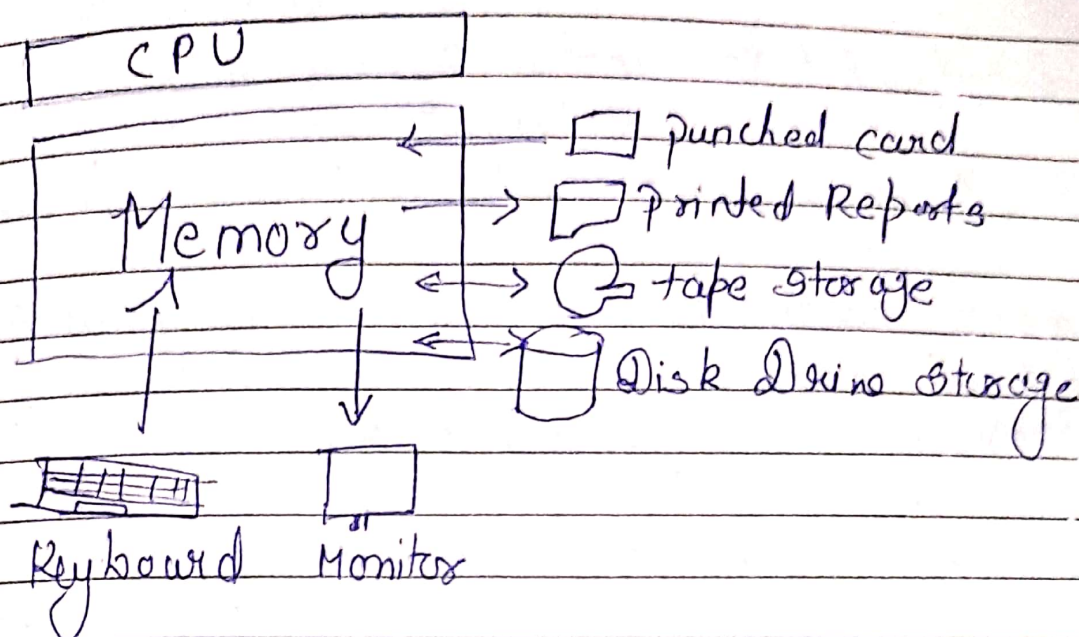 CPU
punched card
Memory
Printed Reports
tape storage
Disk Drive storage
Keyboard Monitor